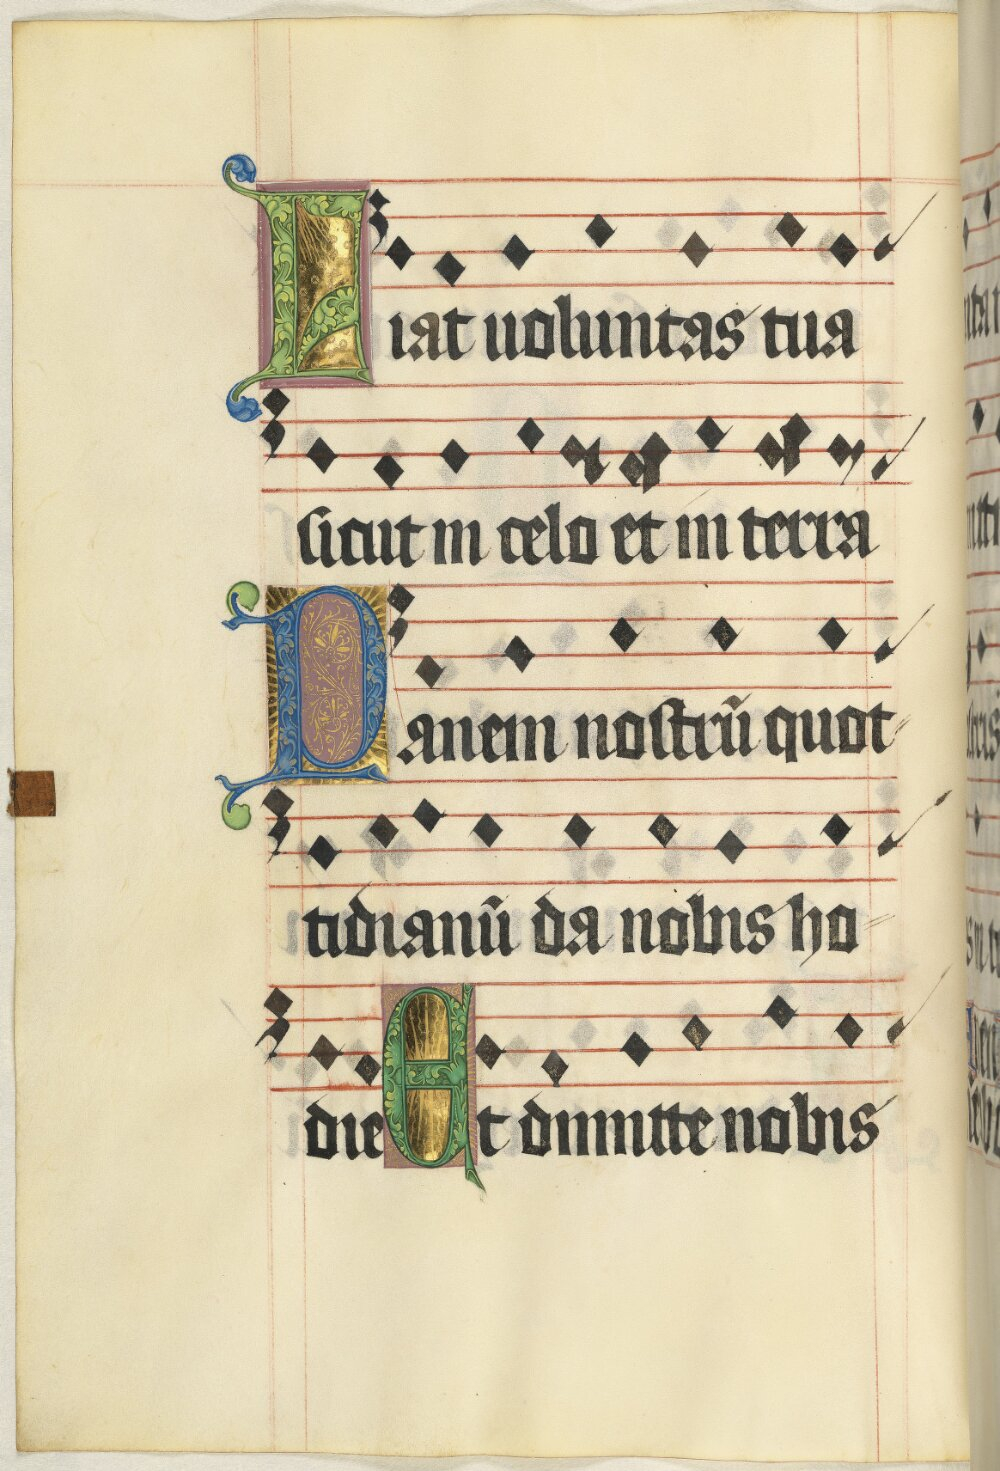 Fiat uoluntas tua
sicut in celo et in terra
Panem nostrū quot
tidianū da nobis ho
die Et dimitte nobis